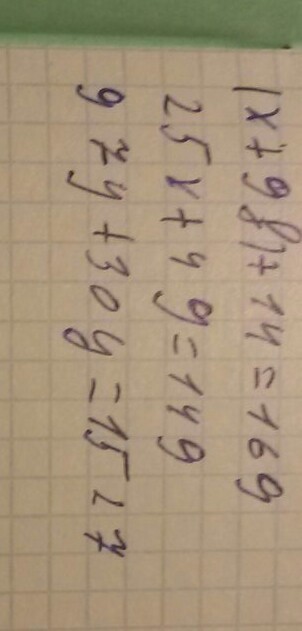 (x+98)+14=169
25x+49=149
97y+30y=1527